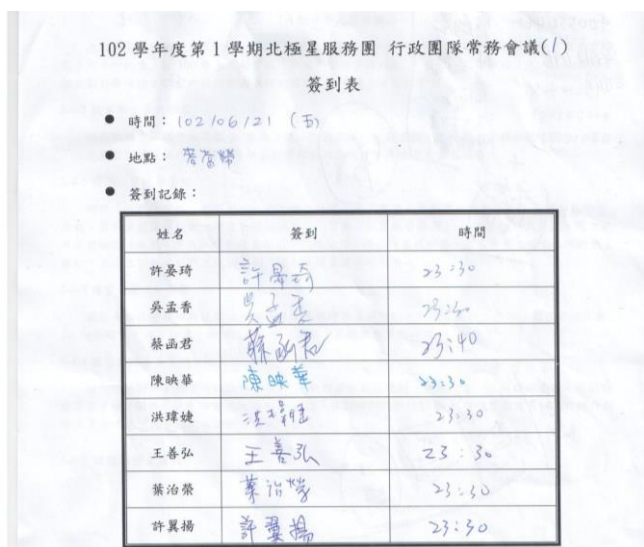 102 學年度第 1 學期北極星服務團 行政團隊常務會議(1)
簽到表
● 時間：102/06/21 (五)
● 地點：麥當勞
● 簽到記錄：
姓名 簽到 時間
許晏琦 許晏琦 23:30
吳孟香 吳孟香 23:30
蔡函君 蔡函君 23:40
陳映華 陳映華 23:30
洪瑋婕 洪瑋婕 23:30
王善弘 王善弘 23:30
葉治榮 葉治榮 23:30
許翼揚 許翼揚 23:30